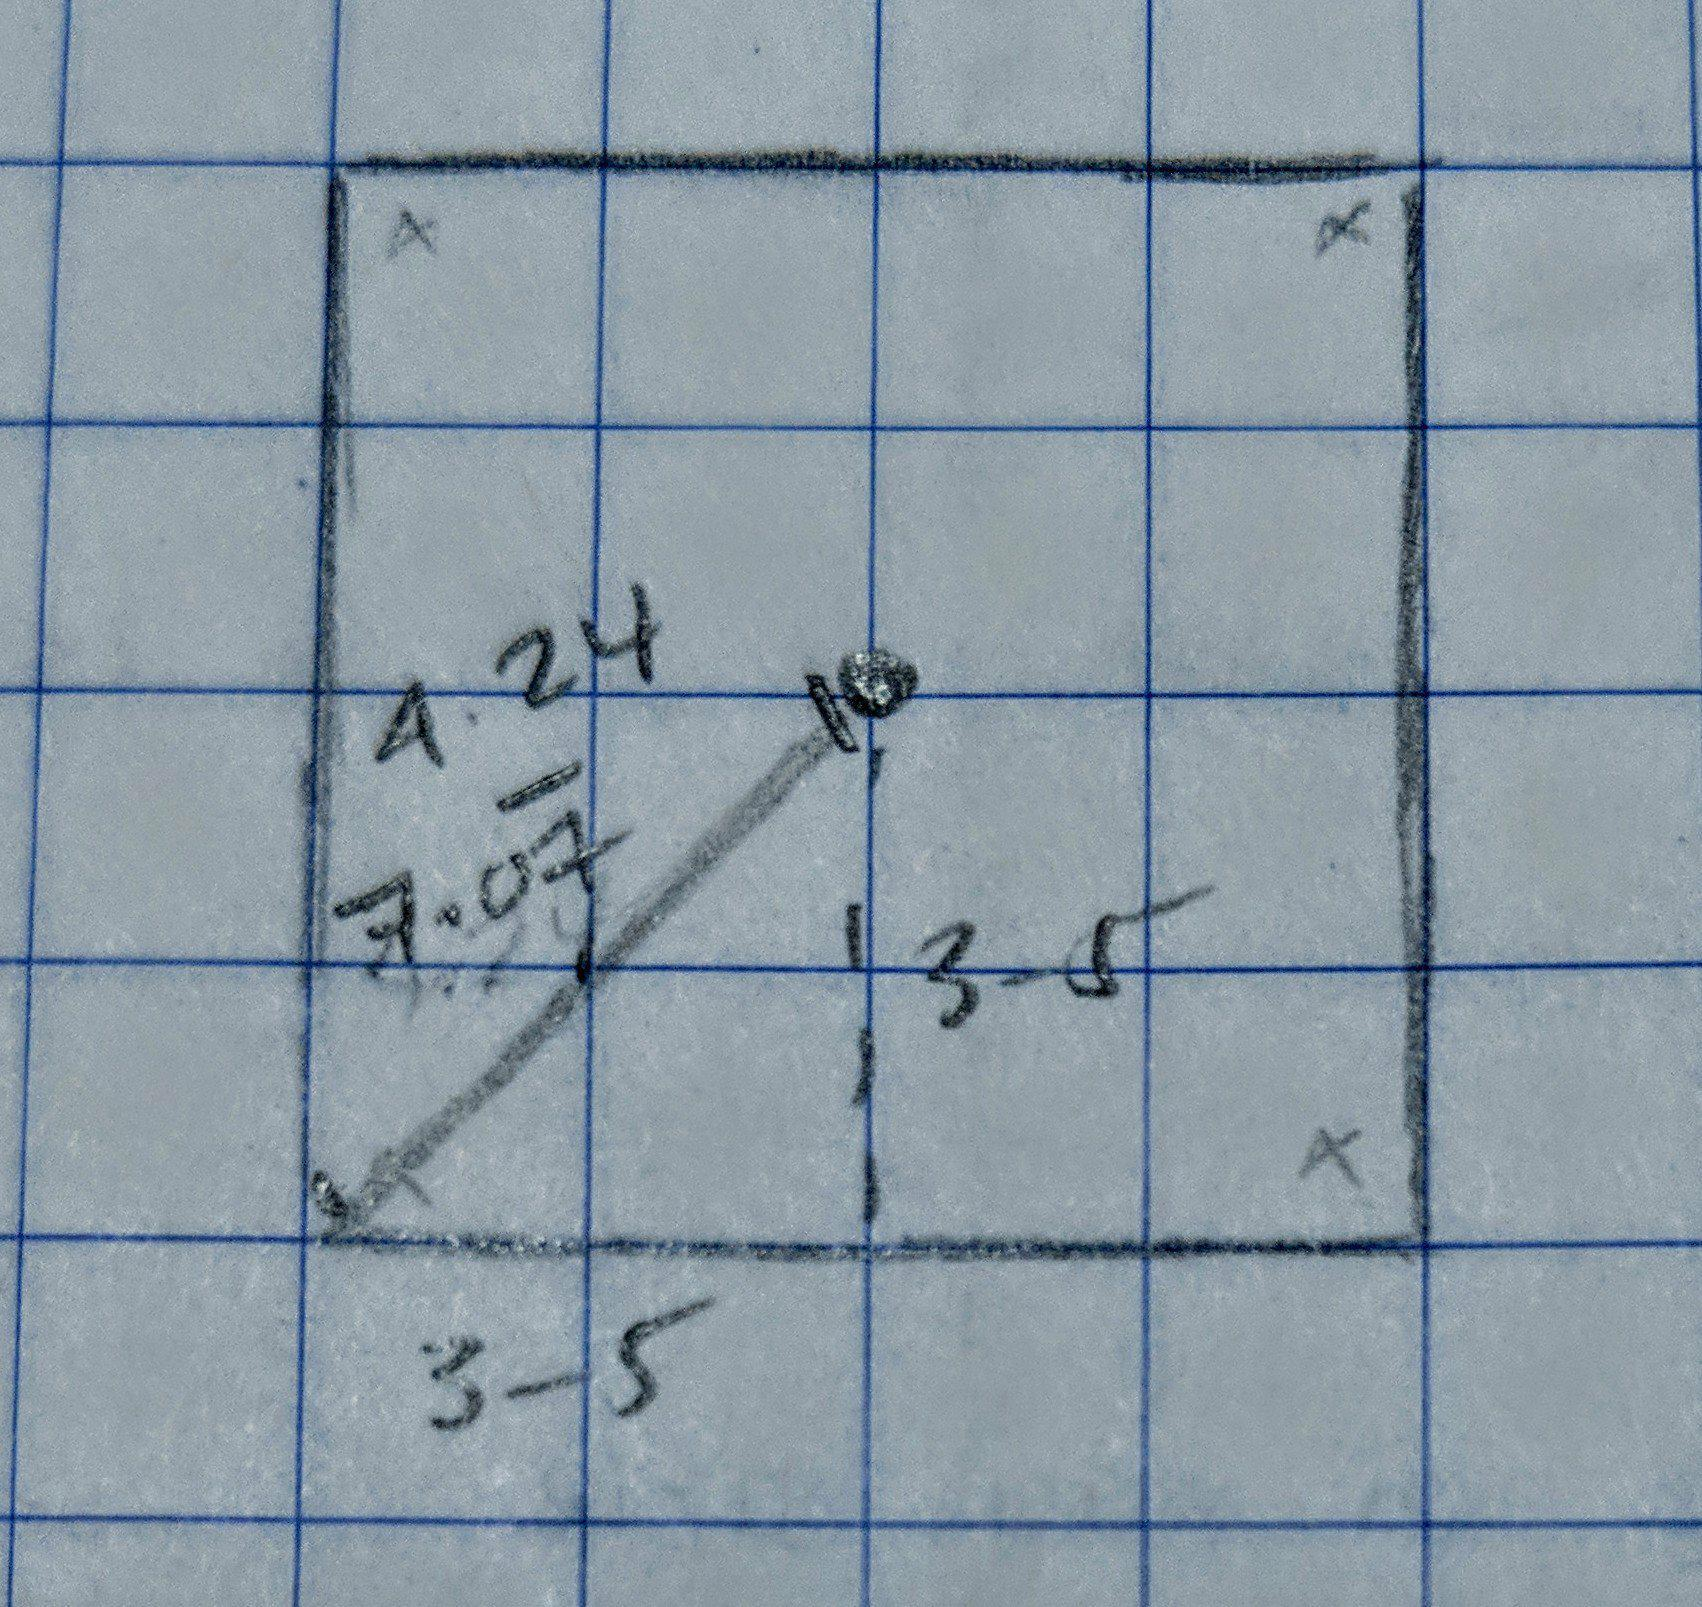 x x
4.24
–
7.07
3-5
x x
3-5